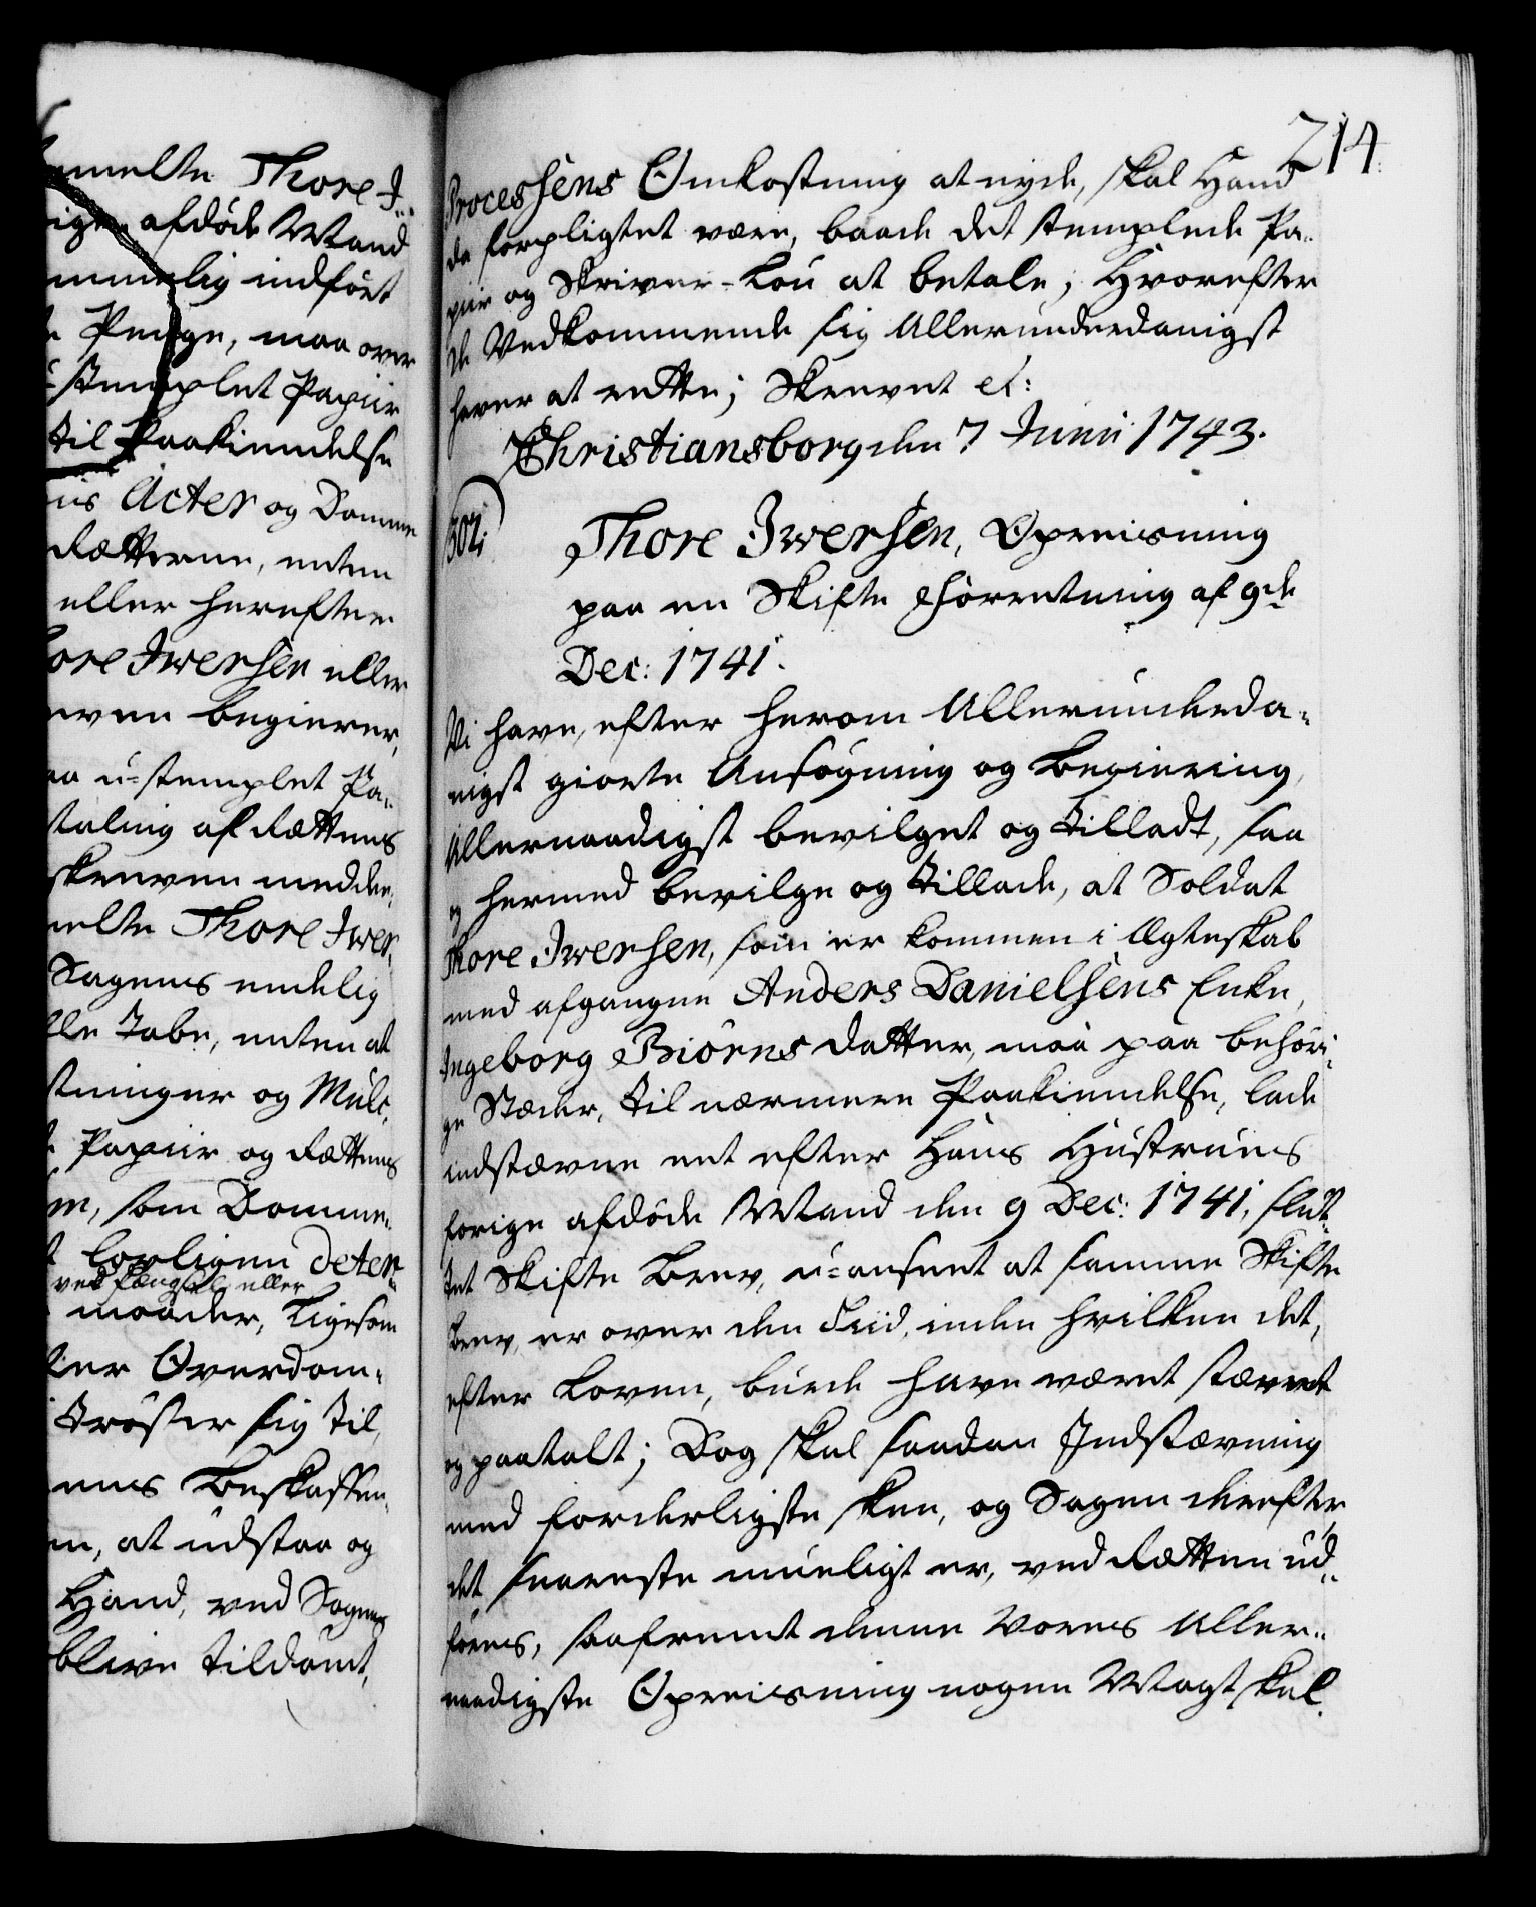 melte Thore I-
afdøde Mand
lig indført
Penge, maa over
stemplet Papiir
til Paakiendelse
Acter og Domme
Rætterne, enten
eller herefter
ore Iwersen eller
begierer,
u-stemplet Pa-
taling af Rættens
skreven meddee-
melte Thore Iwer-
Sagens endelig
Tabe, enten at
og Mulc-
Papiir og Rættens
som Domme-
lovligen deter-
ved Fængsel eller
maader, Ligesom
Overdom-
trøster sig til,
Beskaffen-
at udstaa og
Hand, ved Sagens
blive tildømt,
214.
Processens Omkostning at nyde, skal Hand
da forpligtet være, baade det stemplede Pa-
piir og Skriver-Løn at betale; Hvorefter
de Vedkommende sig Allerunderdanigst
haver at rette; Skrevet etc:
Christiansborg den 7 Junii 1743.
302.
Thore Iwersen, Opreisning
paa en Skifte Forretning af 9de
Dec: 1741.
Vi have, efter herom Allerunderda-
nigst giorte Ansøgning og Begiering,
Allernaadigst bevilget og tilladt, saa
og hermed bevilge og tillade, at Soldat
Thore Iwersen, som er kommen i Ægteskab
med afgangne Anders Danielsens Enke,
Ingeborg Biørns datter, maa paa behøri-
ge Stæder, til nærmere Paakiendelse, lade
indstævne eet efter Hans Hustrues
forige afdøde Mand den 9 Dec: 1741, slut-
tet Skifte Brev, u-anseet at samme Skifte
Brev, er over den Tiid, inden hvilken det,
efter Loven, burde have været stævnet
og paatalt; Dog skal saadan Indstævning
med forderligste skee, og Sagen derefter
det snareste mueligt er, ved Rætten ud-
føres, saafremt denne Vores Aller-
naadigste Opreisning nogen Magt skal